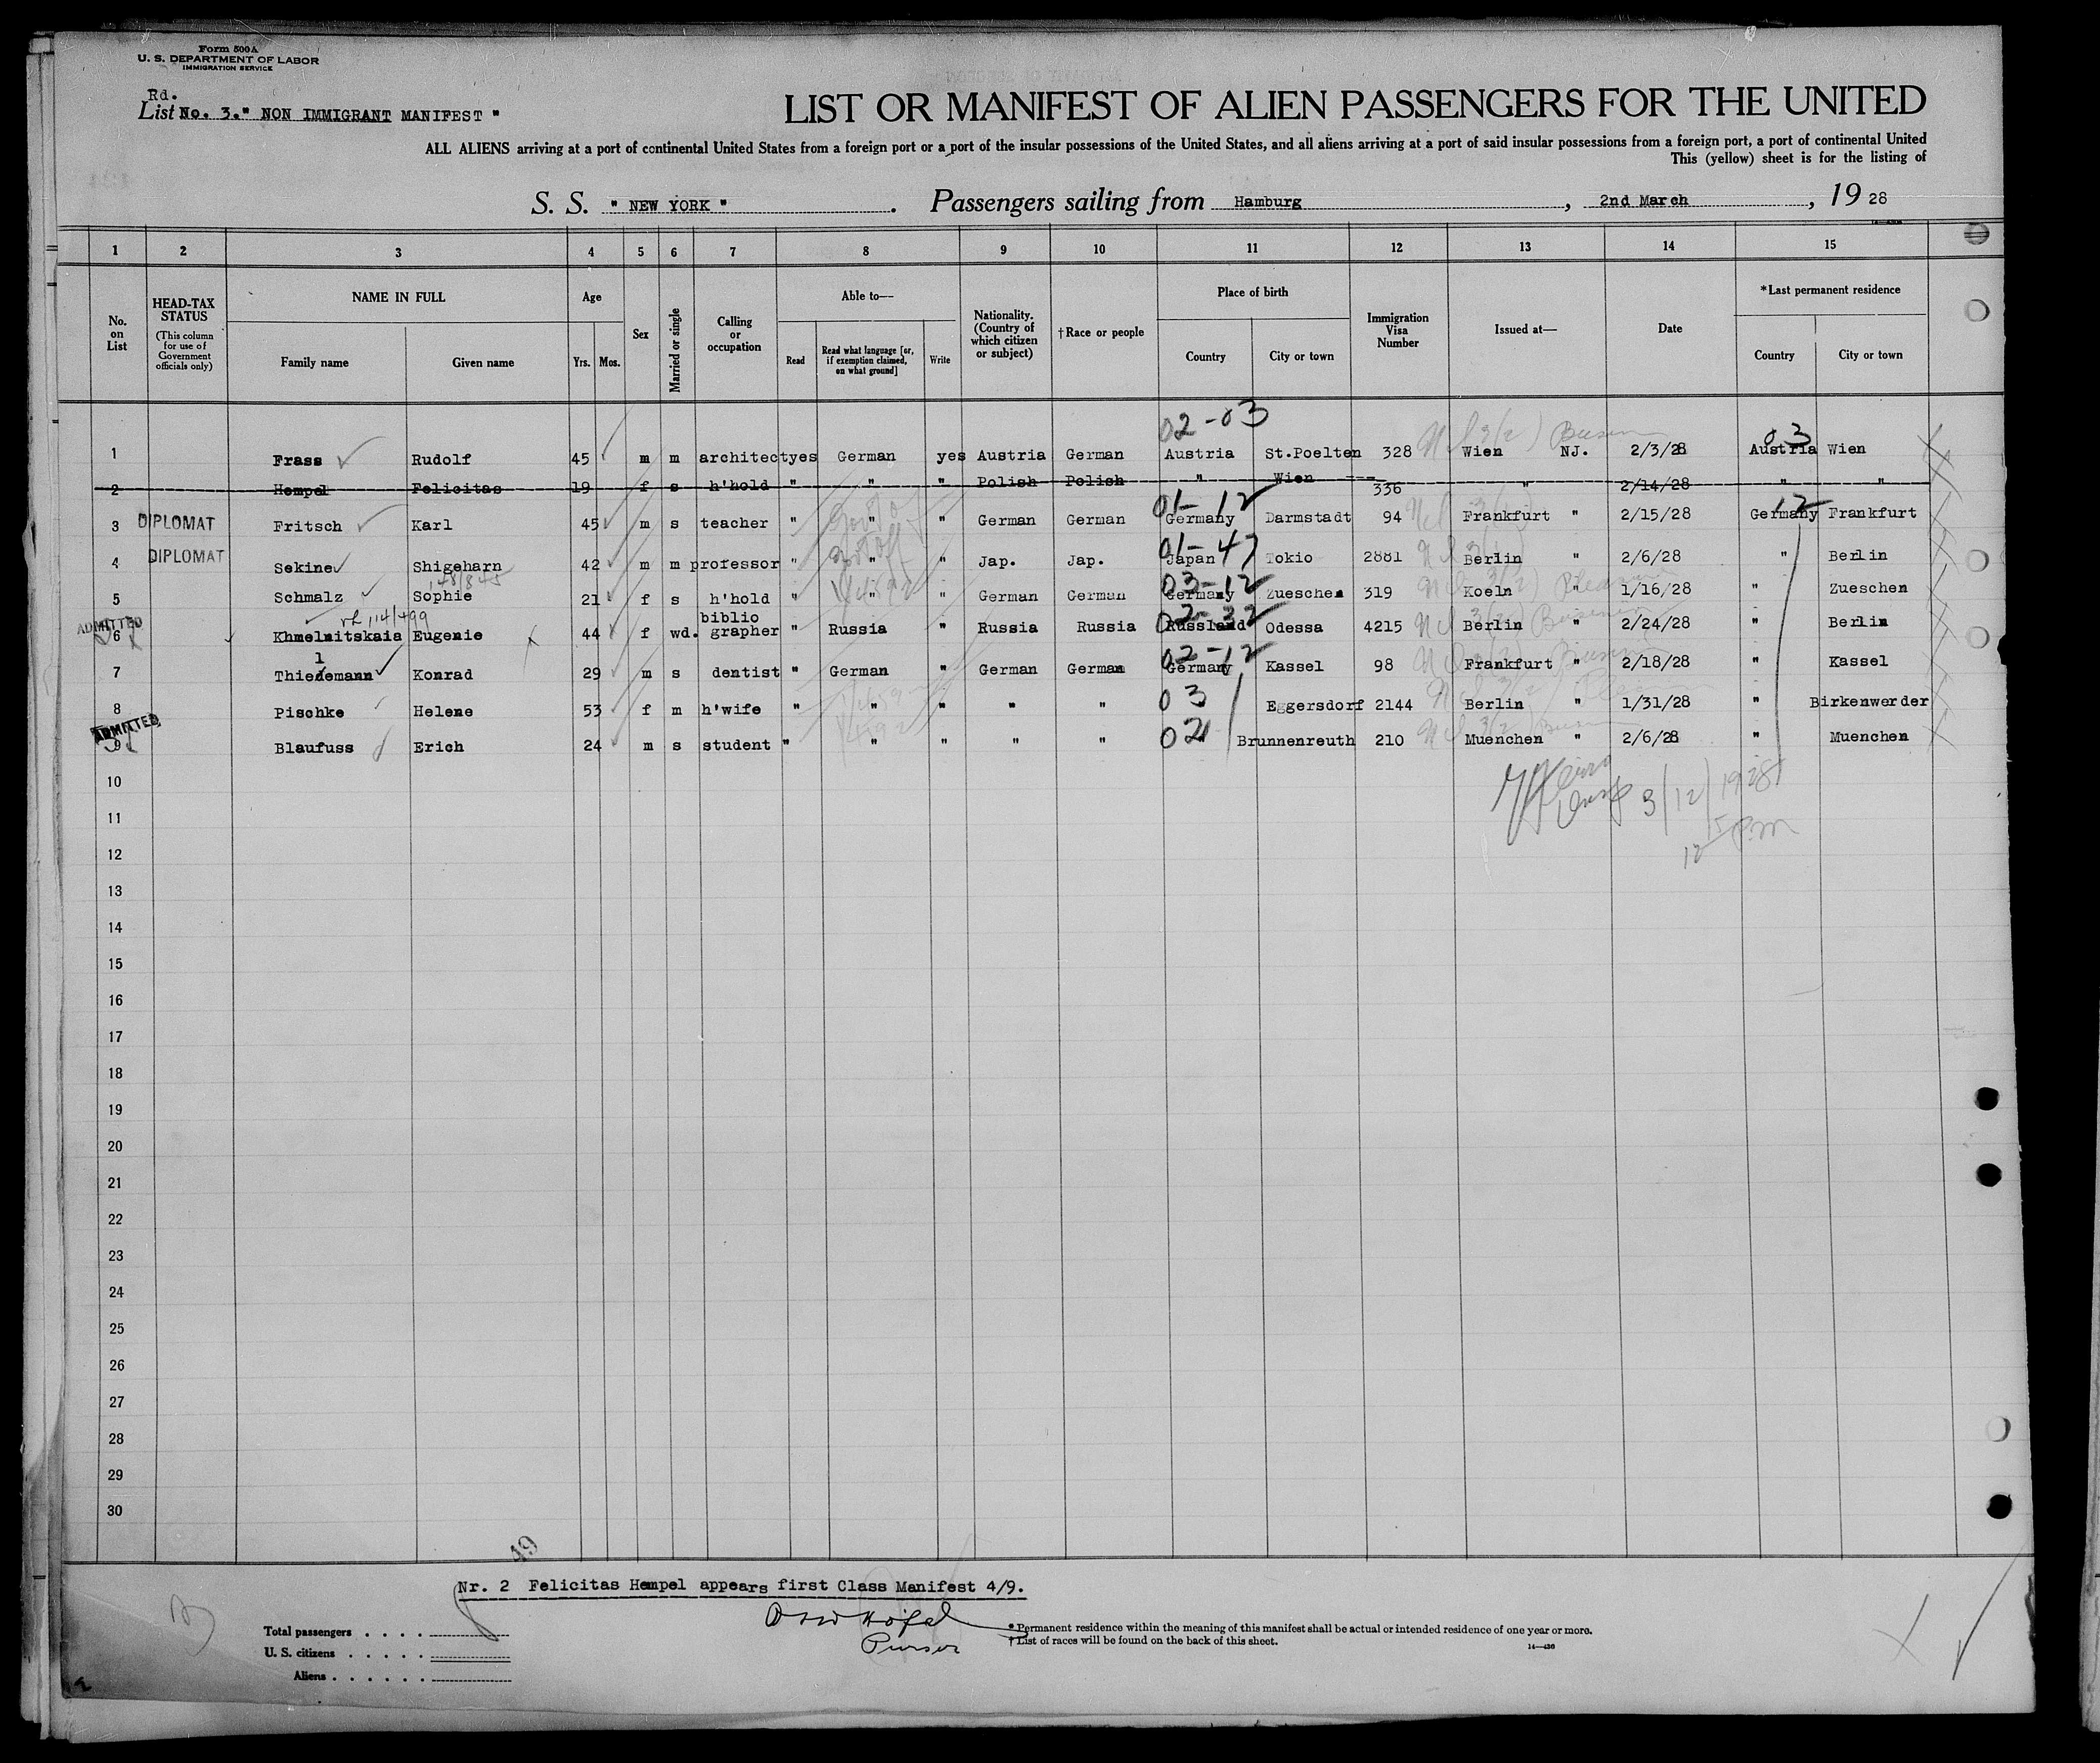 Form 500A
U. S. DEPARTMENT OF LABOR
IMMIGRATION SERVICE
Rd.
List No. 3." NON IMMIGRANT MANIFEST "
LIST OR MANIFEST OF ALIEN PASSENGERS FOR THE UNITED
ALL ALIENS arriving at a port of continental United States from a foreign port or a port of the insular possessions of the United States, and all aliens arriving at a port of said insular possessions from a foreign port, a port of continental United
This (yellow) sheet is for the listing of
S. S. " NEW YORK " . Passengers sailing from Hamburg , 2nd March , 19 28
1 2 3 4 5 6 7 8 9 10 11 12 13 14 15
No. on List
HEAD-TAX STATUS (This column for use of Government officials only)
NAME IN FULL
Family name Given name
Age
Yrs. Mos.
Sex
Married or single
Calling or occupation
Able to—
Read Read what language [or, if exemption claimed, on what ground] Write
Nationality. (Country of which citizen or subject)
†Race or people
Place of birth
Country City or town
Immigration Visa Number
Issued at—
Date
*Last permanent residence
Country City or town
02-03 03
1 Frass Rudolf 45 m m architect yes German yes Austria German Austria St.Poelten 328 Wien NJ. 2/3/28 Austria Wien
2 Hempel Felicitas 19 f s h'hold " " " Polish Polish " Wien 336 " 2/14/28 " "
01-12 12
3 DIPLOMAT Fritsch Karl 45 m s teacher " " " German German Germany Darmstadt 94 Frankfurt " 2/15/28 Germany Frankfurt
01-47
4 DIPLOMAT Sekine Shigeharn 42 m m professor " " " Jap. Jap. Japan Tokio 2881 Berlin " 2/6/28 " Berlin
148/845 03-12
5 Schmalz Sophie 21 f s h'hold " " " German German Germany Zueschen 319 Koeln " 1/16/28 " Zueschen
ADMITTED 114/499 biblio 02-32
6 Khmelnitskaia Eugenie 44 f wd. grapher " Russia " Russia Russia Russland Odessa 4215 Berlin " 2/24/28 " Berlin
l 02-12
7 Thiedemann Konrad 29 m s dentist " German " German German Germany Kassel 98 Frankfurt " 2/18/28 " Kassel
8 Pischke Helene 53 f m h'wife " " " " " 03 Eggersdorf 2144 Berlin " 1/31/28 " Birkenwerder
ADMITTED
9 Blaufuss Erich 24 m s student " " " " " 02 Brunnenreuth 210 Muenchen " 2/6/28 " Muenchen
10
3/12/1928
11
12
12 15 PM
13
14
15
16
17
18
19
20
21
22
23
24
25
26
27
28
29
30
49
Nr. 2 Felicitas Hempel appears first Class Manifest 4/9.
Purser
Total passengers . . . .
U. S. citizens . . . . .
Aliens . . . . . .
* Permanent residence within the meaning of this manifest shall be actual or intended residence of one year or more.
† List of races will be found on the back of this sheet.
14—436